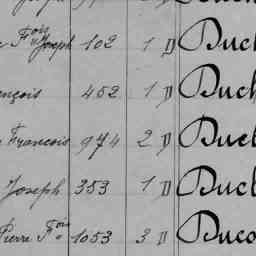 Fois Joseph 102 1 D Duch
ençois 452 1 D Duch
François 974 2 D Duch
Joseph 353 1 D Duch
Pierre Fois 1053 3 D Duco